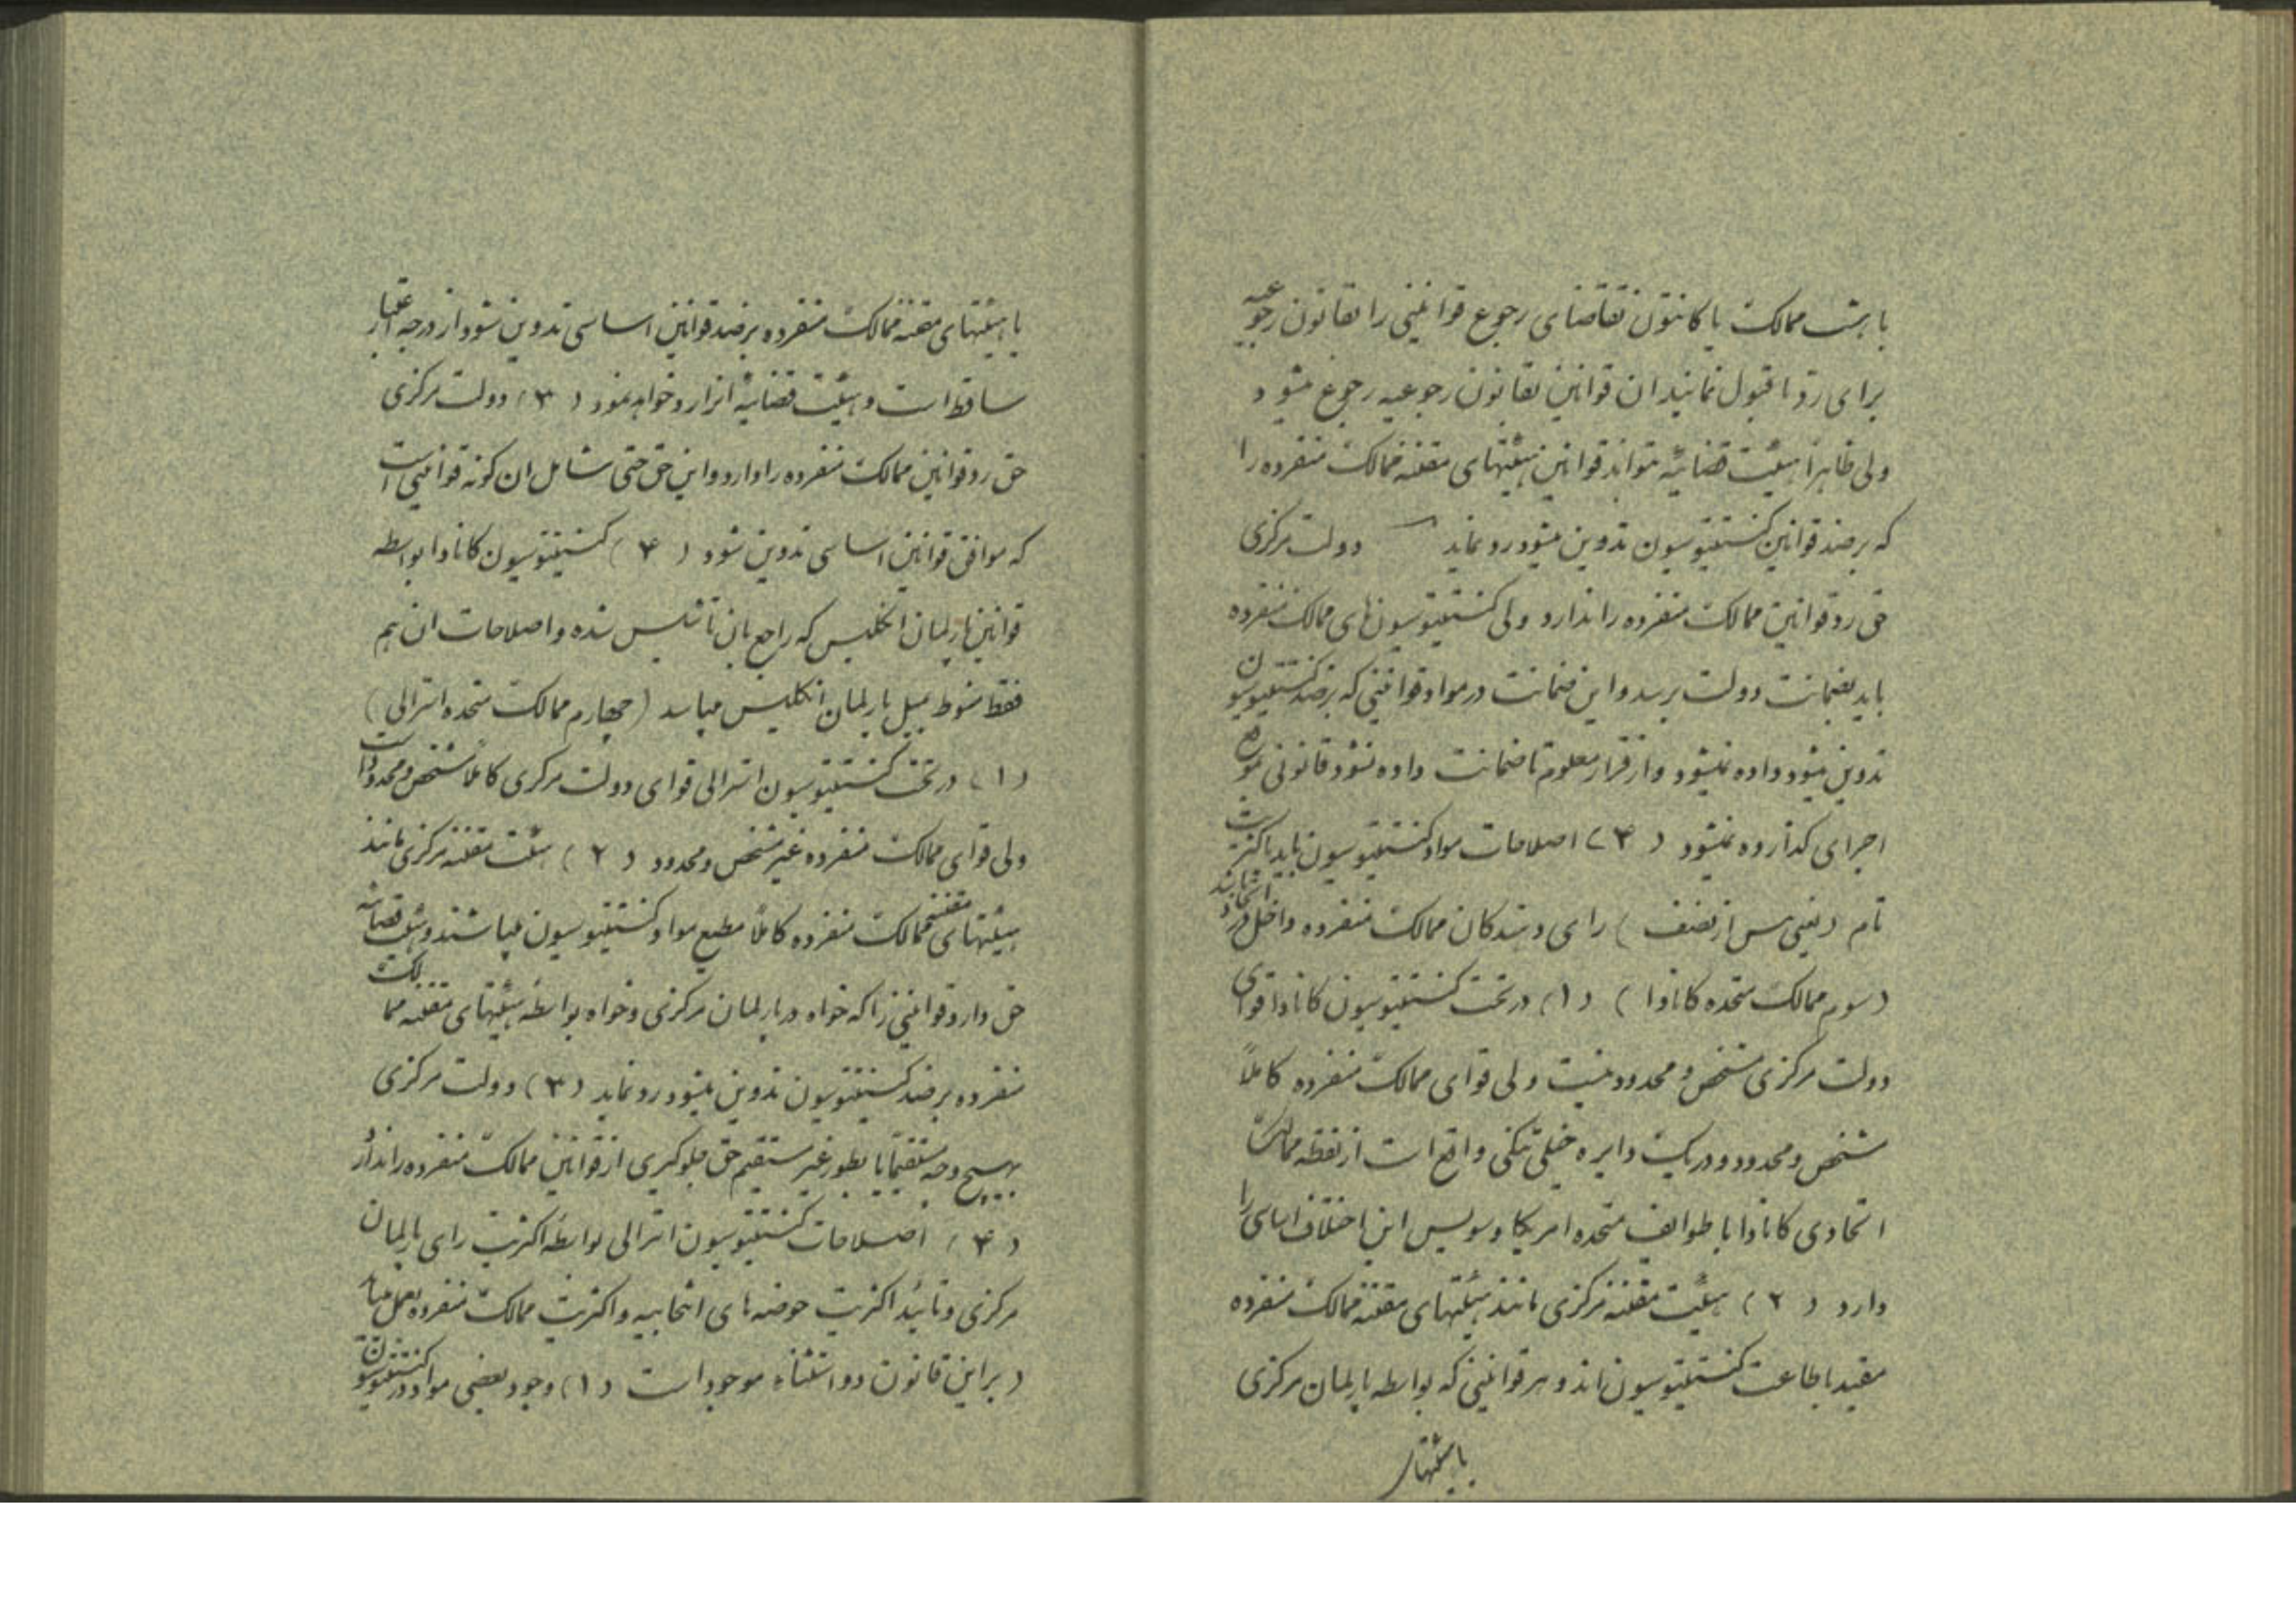 یا هشت ممالک یا کانتون تقاضای رجوع قوانینی را بقانون رجوعیه
برای رد یا قبول نمایند ان قوانین بقانون رجوعیه رجوع میشود
ولی ظاهرا هیئت قضائیه نمیتواند قوانین هیئتهای مقننه ممالک منفرده را
که برضد قوانین کنستیتوسیون تدوین میشود رد نماید دولت مرکزی
حق رد قوانین ممالک منفرده را ندارد ولی کنستیتوسیون های ممالک منفرده
باید بضمانت دولت برسد و این ضمانت در مواد قوانینی که برضد کنستیتوسیون
تدوین میشود داده نمیشود و از قرار معلوم تا ضمانت داده نشود قانونی بموقع
اجرای گذارده نمیشود (۴) اصلاحات مواد کنستیتوسیون باید باکثریت
تام (یعنی بس از نصف) رای دهندگان ممالک منفرده داخل در اتحاد باشد
(سوم ممالک متحده کانادا) (۱) در تحت کنستیتوسیون کانادا قوای
دولت مرکزی مشخص و محدود نیست ولی قوای ممالک منفرده کاملاً
مشخص و محدود و در یک دایره خیلی تنگی واقع است از نقطه ممالک
اتحادی کانادا با طوایف متحده امریکا و سویس این اختلاف اساسی را
دارد (۲) هیئت مقننه مرکزی مانند هیئتهای مقننه ممالک منفرده
مقید باطاعت کنستیتوسیون اند و هر قوانینی که بواسطه پارلمان مرکزی
یا هیئتهای
یا هیئتهای مقننه ممالک منفرده برضد قوانین اساسی تدوین شود از درجه اعتبار
ساقط است و هیئت قضائیه انرا رد خواهد نمود (۳) دولت مرکزی
حق رد قوانین ممالک منفرده را دارد و این حق حتی شامل ان گونه قوانینی است
که موافق قوانین اساسی تدوین شود (۴) کنستیتوسیون کانادا بواسطه
قوانین پارلمان انگلیس که راجع بان تاسیس شده و اصلاحات ان هم
فقط منوط بمیل پارلمان انگلیس میباشد (چهارم ممالک متحده استرالی)
(۱) در تحت کنستیتوسیون استرالی قوای دولت مرکزی کاملاً مشخص و محدود است
ولی قوای ممالک منفرده غیر مشخص و محدود (۲) هیئت مقننه مرکزی مانند
هیئتهای مقننه ممالک منفرده کاملاً مطیع مواد کنستیتوسیون میباشند و هیئت قضائیه
حق دارد قوانینی را که خواه در پارلمان مرکزی و خواه بواسطه هیئتهای مقننه ممالک
منفرده برضد کنستیتوسیون تدوین میشود رد نماید (۳) دولت مرکزی
بهیچ وجه مستقیماً یا بطور غیر مستقیم حق جلوگیری از قوانین ممالک منفرده را ندارد
(۴) اصلاحات کنستیتوسیون استرالی بواسطه اکثریت رای پارلمان
مرکزی و تائید اکثریت حوضه های انتخابیه و اکثریت ممالک منفرده بعمل میاید
(بر این قانون دو استثناء موجود است (۱) وجود بعضی مواد در کنستیتوسیون